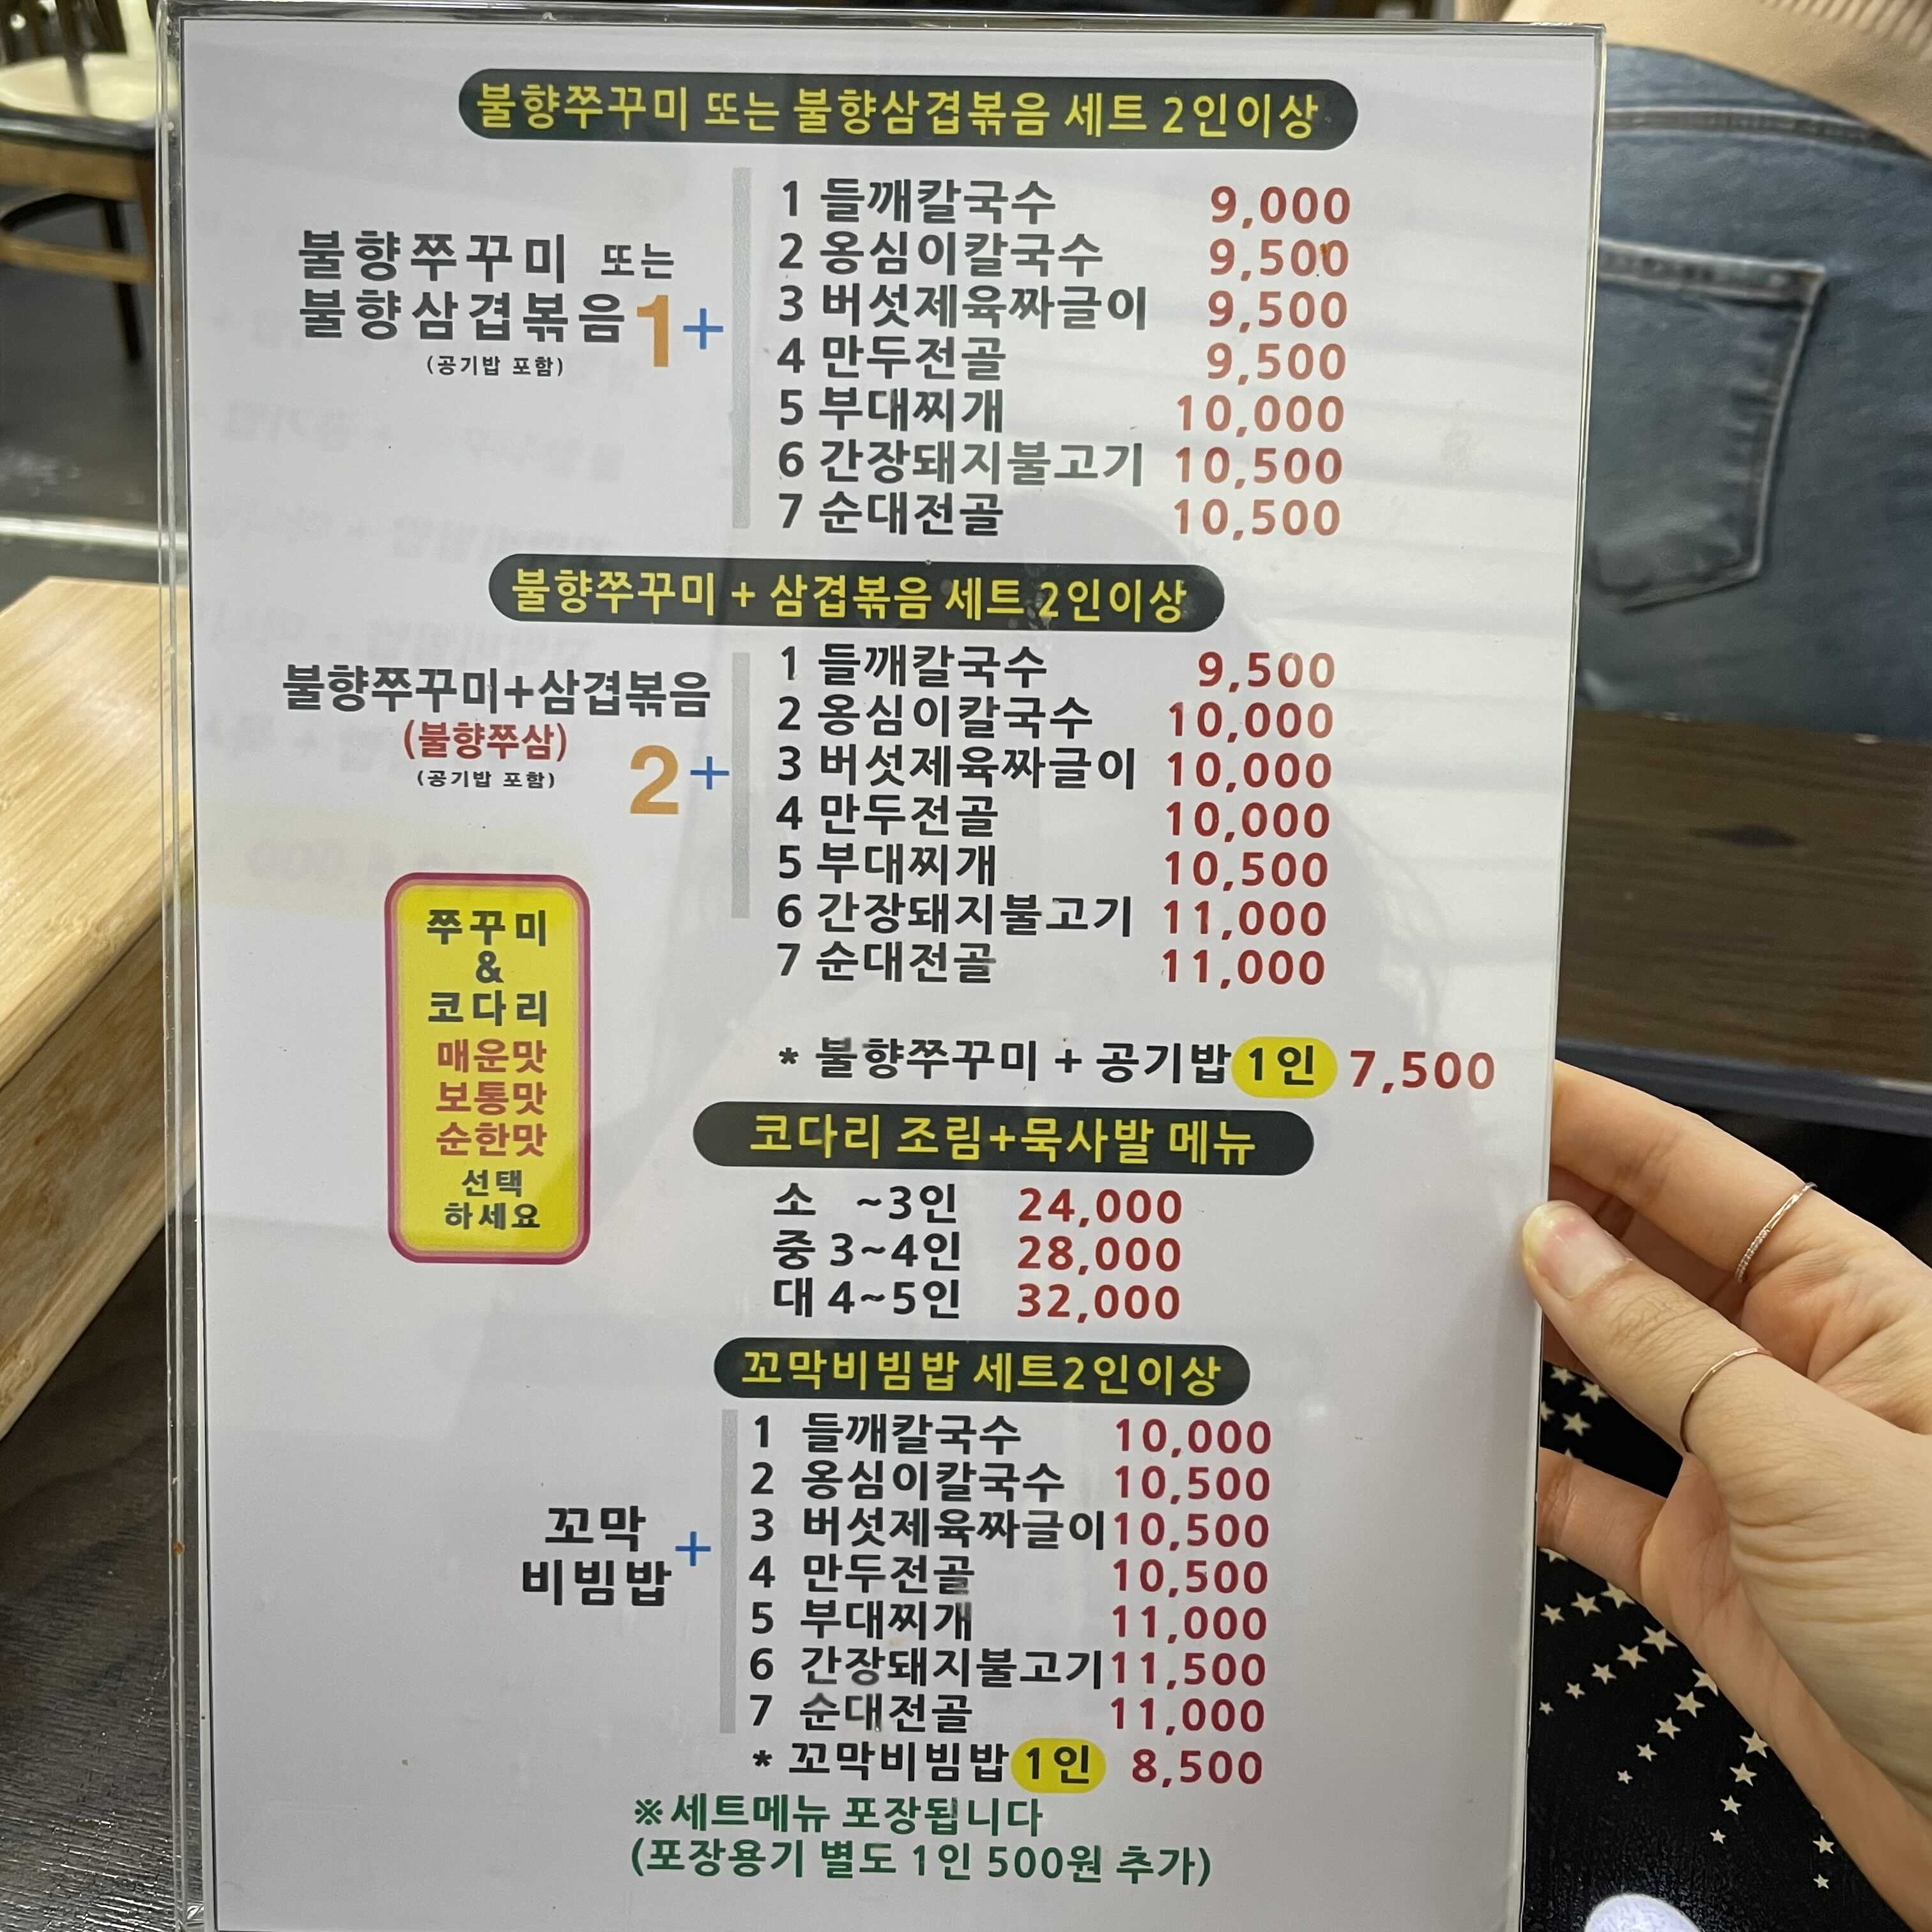 불향쭈꾸미 또는 불향삼겹볶음 세트 2인이상
불향쭈꾸미 또는
불향삼겹볶음 1+
(공기밥 포함)
1 들깨칼국수 9,000
2 옹심이칼국수 9,500
3 버섯제육짜글이 9,500
4 만두전골 9,500
5 부대찌개 10,000
6 간장돼지불고기 10,500
7 순대전골 10,500
불향쭈꾸미 + 삼겹볶음 세트 2인이상
불향쭈꾸미+삼겹볶음
(불향쭈삼)
(공기밥 포함)
2+
1 들깨칼국수 9,500
2 옹심이칼국수 10,000
3 버섯제육짜글이 10,000
4 만두전골 10,000
5 부대찌개 10,500
6 간장돼지불고기 11,000
7 순대전골 11,000
* 불향쭈꾸미 + 공기밥 1인 7,500
쭈꾸미
&
코다리
매운맛
보통맛
순한맛
선택
하세요
코다리 조림+묵사발 메뉴
소 ~3인 24,000
중 3~4인 28,000
대 4~5인 32,000
꼬막비빔밥 세트2인이상
꼬막
비빔밥 +
1 들깨칼국수 10,000
2 옹심이칼국수 10,500
3 버섯제육짜글이 10,500
4 만두전골 10,500
5 부대찌개 11,000
6 간장돼지불고기 11,500
7 순대전골 11,000
* 꼬막비빔밥 1인 8,500
※세트메뉴 포장됩니다
(포장용기 별도 1인 500원 추가)